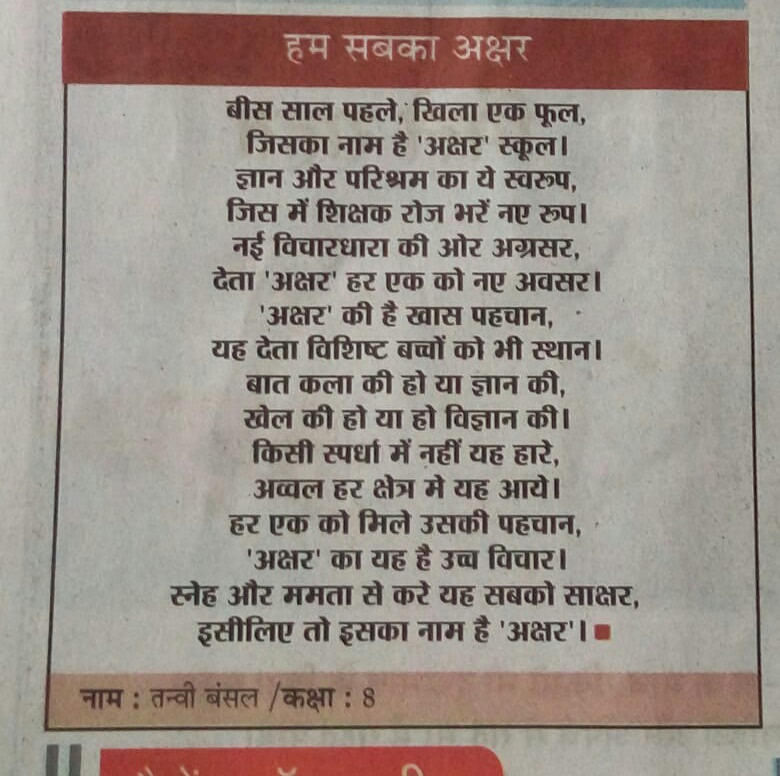 हम सबका अक्षर
बीस साल पहले, खिला एक फूल,
जिसका नाम है 'अक्षर' स्कूल।
ज्ञान और परिश्रम का ये स्वरूप,
जिस में शिक्षक रोज भरें नए रूप।
नई विचारधारा की ओर अग्रसर,
देता 'अक्षर' हर एक को नए अवसर।
'अक्षर' की है खास पहचान,
यह देता विशिष्ट बच्चों को भी स्थान।
बात कला की हो या ज्ञान की,
खेल की हो या हो विज्ञान की।
किसी स्पर्धा में नहीं यह हारे,
अव्वल हर क्षेत्र मे यह आये।
हर एक को मिले उसकी पहचान,
'अक्षर' का यह है उच्च विचार।
स्नेह और ममता से करे यह सबको साक्षर,
इसीलिए तो इसका नाम है 'अक्षर'।
नाम : तन्वी बंसल /कक्षा : 8